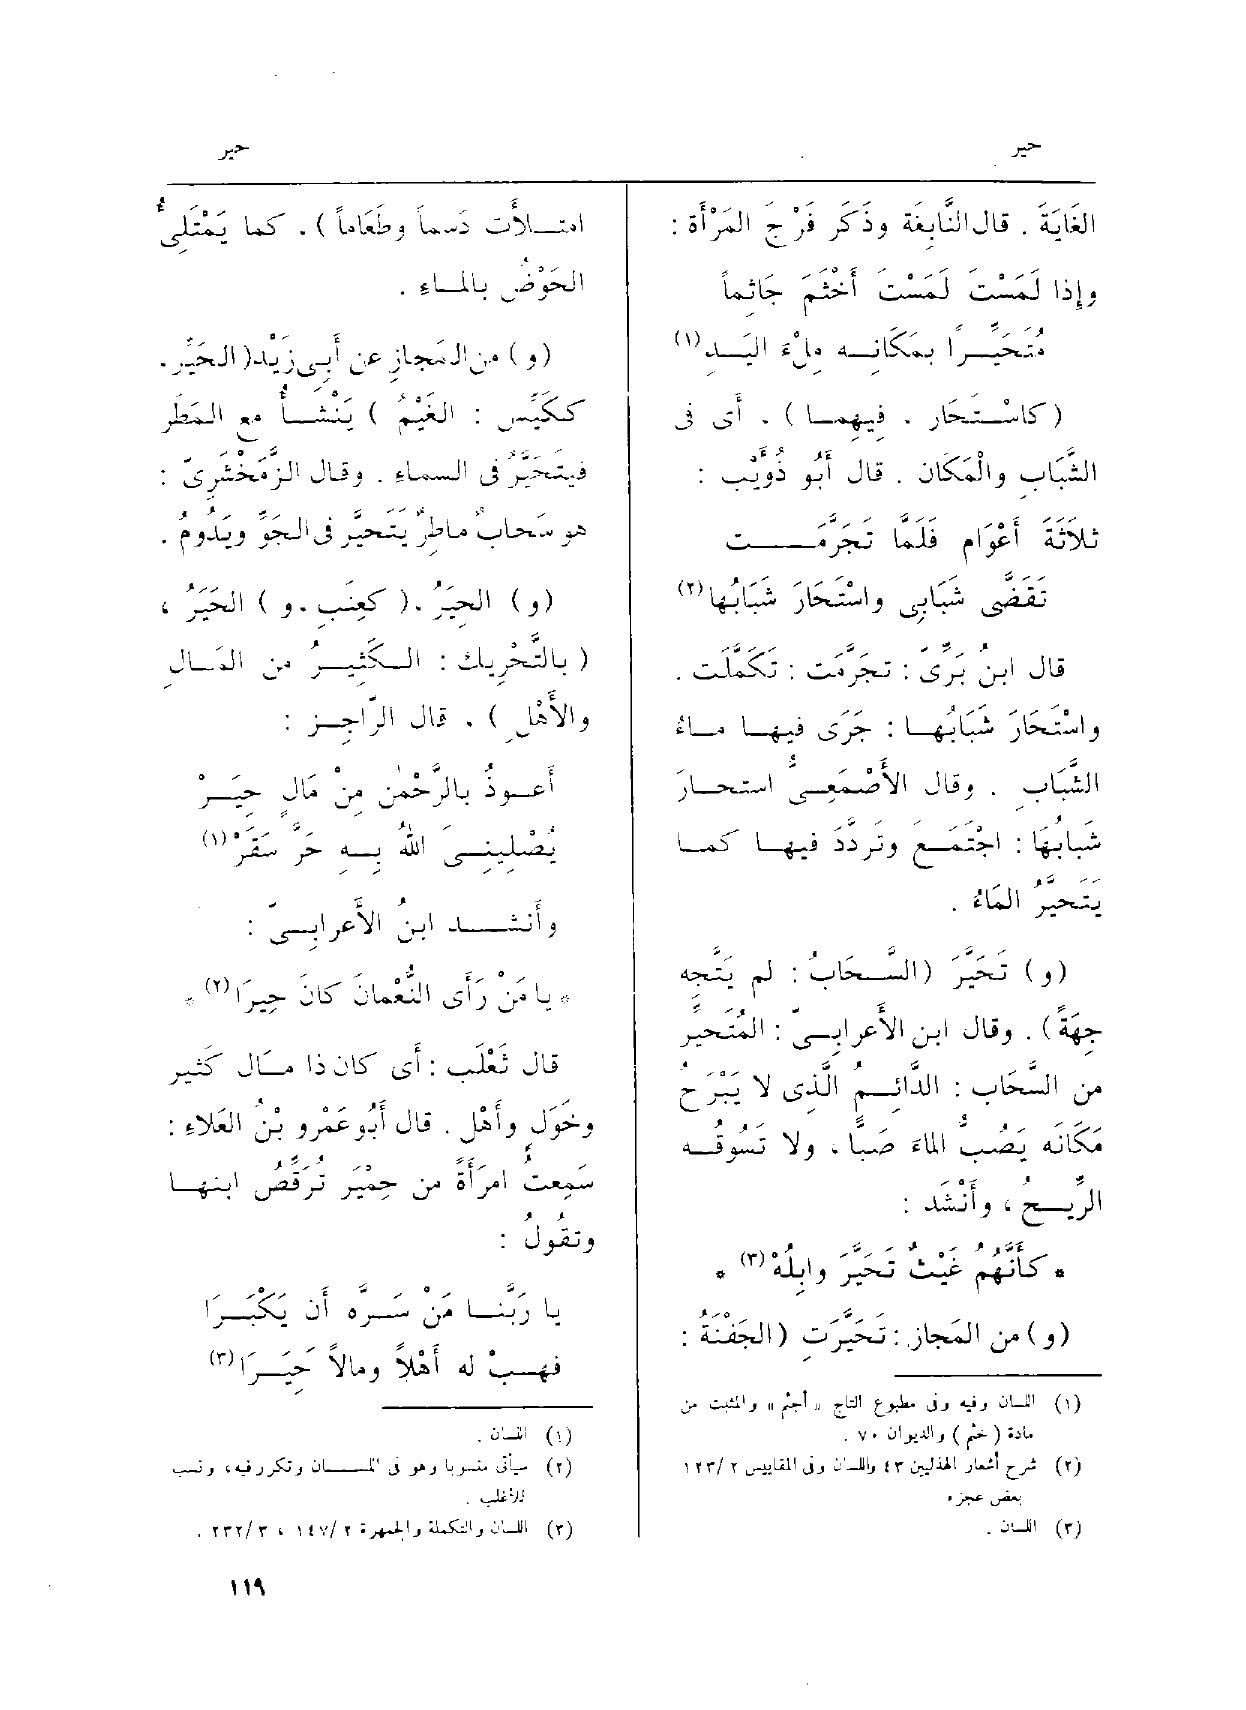 حير
حير
الغَايَةَ . قال النَّابِغَة وذَكَر فَرْجَ المَرْأَة :
وإِذا لَمَسْتَ لَمَسْتَ أَخْثَمَ جَاثِماً
مُتَحَيِّـرًا بمَكَانِـه مِلْءَ اليَـدِ (١)
( كاسْـتَحَار . فيهمـا ) . أَى فى
الشَّبَابِ والْمَكَان . قال أَبُو ذُؤَيْب :
ثلاَثَةَ أَعْوَامٍ فَلَمَّا تَجَرَّمَـــت
تَقَضَّى شَبَابِى واسْتَحَارَ شَبَابُها (٢)
قال ابنُ بَرِّىّ : تجَرَّمَت : تَكَمَّلَت .
واسْتَحَارَ شَبَابُهـا : جَرَى فيهـا مـاءُ
الشَّبَابِ . وقال الأَصْمَعِـىُّ استحـارَ
شَبَابُهَا : اجْتَمَـع وتَردَّدَ فيهـا كمـا
يَتَحيَّرُ المَاءُ .
(و) تَحَيَّرَ (السَّـحَابُ : لم يَتَّجِه
جِهَةً) . وقال ابن الأَعرابـىّ : المُتَحيِّرُ
من السَّحَاب : الدَّائِـمُ الَّذِى لا يَبْرَحُ
مَكَانَه يَصُبُّ الماءَ صَبًّا ، ولا تَسُوقُـه
الرِّيـحُ ، وأَنْشَد :
* كأَنَّهُم غَيْثٌ تَحَيَّرَ وابِلُهْ (٣) *
(و) من المَجاز : تَحَيَّرَتِ (الجَفْنَةُ :
(١) اللسان وفيه وفى مطبوع التاج « أجثم » والمثبت من
مادة ( خثم ) والديوان ٧٠ .
(٢) شرح أشعار الهذليين ٤٣ واللسان وفى المقاييس ٢ /١٢٣
بعض عجزه
(٣) اللسان .
امتـلأَت دَسماً وطَعَاماً ) . كما يَمْتَلِىءُ
الحَوْضُ بالمـاءِ .
(و) من المَجاز عن أَبِى زَيْد ( الحَيِّر .
ككَيِّس : الغَيْمُ ) يَنْشَـأُ مع المَطَرِ
فيتَحَيَّرُ فى السماءِ . وقال الزَّمَخْشَرِىّ :
هو سَحابٌ ماطِرٌ يَتَحيَّر فى الجَوِّ ويَدُومُ .
(و) الحِيَرُ .( كعِنَبٍ . و ) الحَيَرُ ،
( بالتَّحْرِيك : الـكَثِيـرُ من المَـالِ
والأَهْلِ ) . قال الرّاجـز :
أَعـوذُ بالرَّحْمٰنِ مِنْ مَالٍ حِيَـرْ
يُصْلِينِـى اللهُ بِـه حَرَّ سَقَرْ (١)
وأَنشــد ابنُ الأَعرابـىّ :
* يا مَنْ رَأَى النُّعْمانَ كانَ حِيَرَا (٢) *
قال ثَعْلَب : أَى كان ذا مـال كَثير
وخَوَلٍ وأَهْل . قال أَبُو عَمْرِو بْنُ العَلاءِ :
سَمِعتُ امرَأَةً من حِمْيَر تُرَقِّصُ ابنهـا
وتقُولُ :
يا رَبَّنـا مَنْ سَـرَّه أَن يَكْبَـرَا
فهَـبْ له أَهْلاً ومالاً حِيَـرَا (٣)
(١) اللسان .
(٢) سيأتى منسوبا وهو فى اللســان وتكرر فيه ، ونسب
للأغلب .
(٣) اللسان والتكملة والجمهرة ٢ /١٤٧ ، ٣ /٢٣٢ .
١١٩